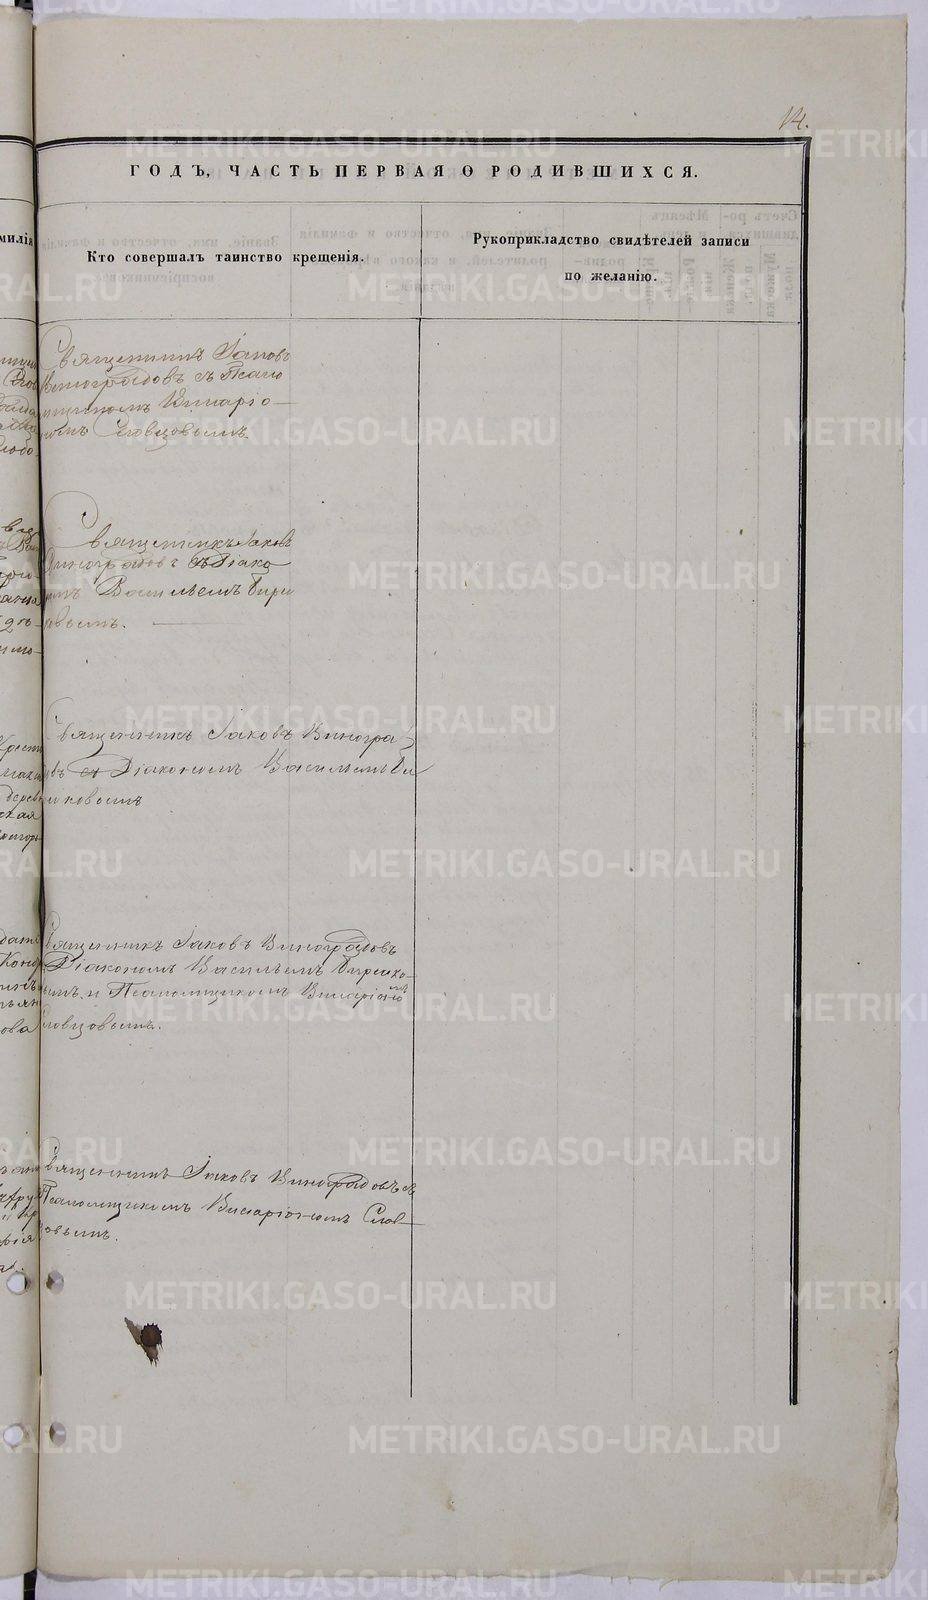 14.
ГОДЪ, ЧАСТЬ ПЕРВАЯ О РОДИВШИХСЯ.
Кто совершалъ таинство крещенія.
Рукоприкладство свидѣтелей записи
по желанію.
Священникъ Іаковъ
Виноградовъ съ Псало
мщикомъ Виссаріо-
номъ Словцовымъ.
Священникъ Іаковъ
Виноградовъ съ Діако
номъ Васильемъ Бирю
ковымъ.
Священникъ Іаковъ Виногра
довъ съ Діакономъ Васильемъ Би
рюковымъ
Священникъ Іаковъ Виноградовъ
Діакономъ Васильемъ Бирюко-
вымъ и Псаломщикомъ Виссаріономъ
Словцовымъ.
Священникъ Іаковъ Виноградовъ съ
Псаломщикомъ Виссаріономъ Слов-
цовымъ.
METRIKI.GASO-URAL.RU